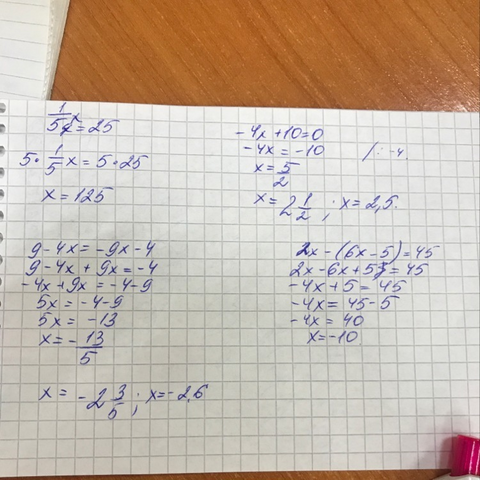 1/5 x = 25
5 · 1/5 x = 5 · 25
x = 125
-4x + 10 = 0
-4x = -10 /: -4
x = 5/2
x = 2 1/2 ; x = 2,5.
9 - 4x = -9x - 4
9 - 4x + 9x = -4
-4x + 9x = -4 - 9
5x = -4 - 9
5x = -13
x = - 13/5
x = -2 3/5 ; x = -2,6
2x - (6x - 5) = 45
2x - 6x + 5 = 45
-4x + 5 = 45
-4x = 45 - 5
-4x = 40
x = -10